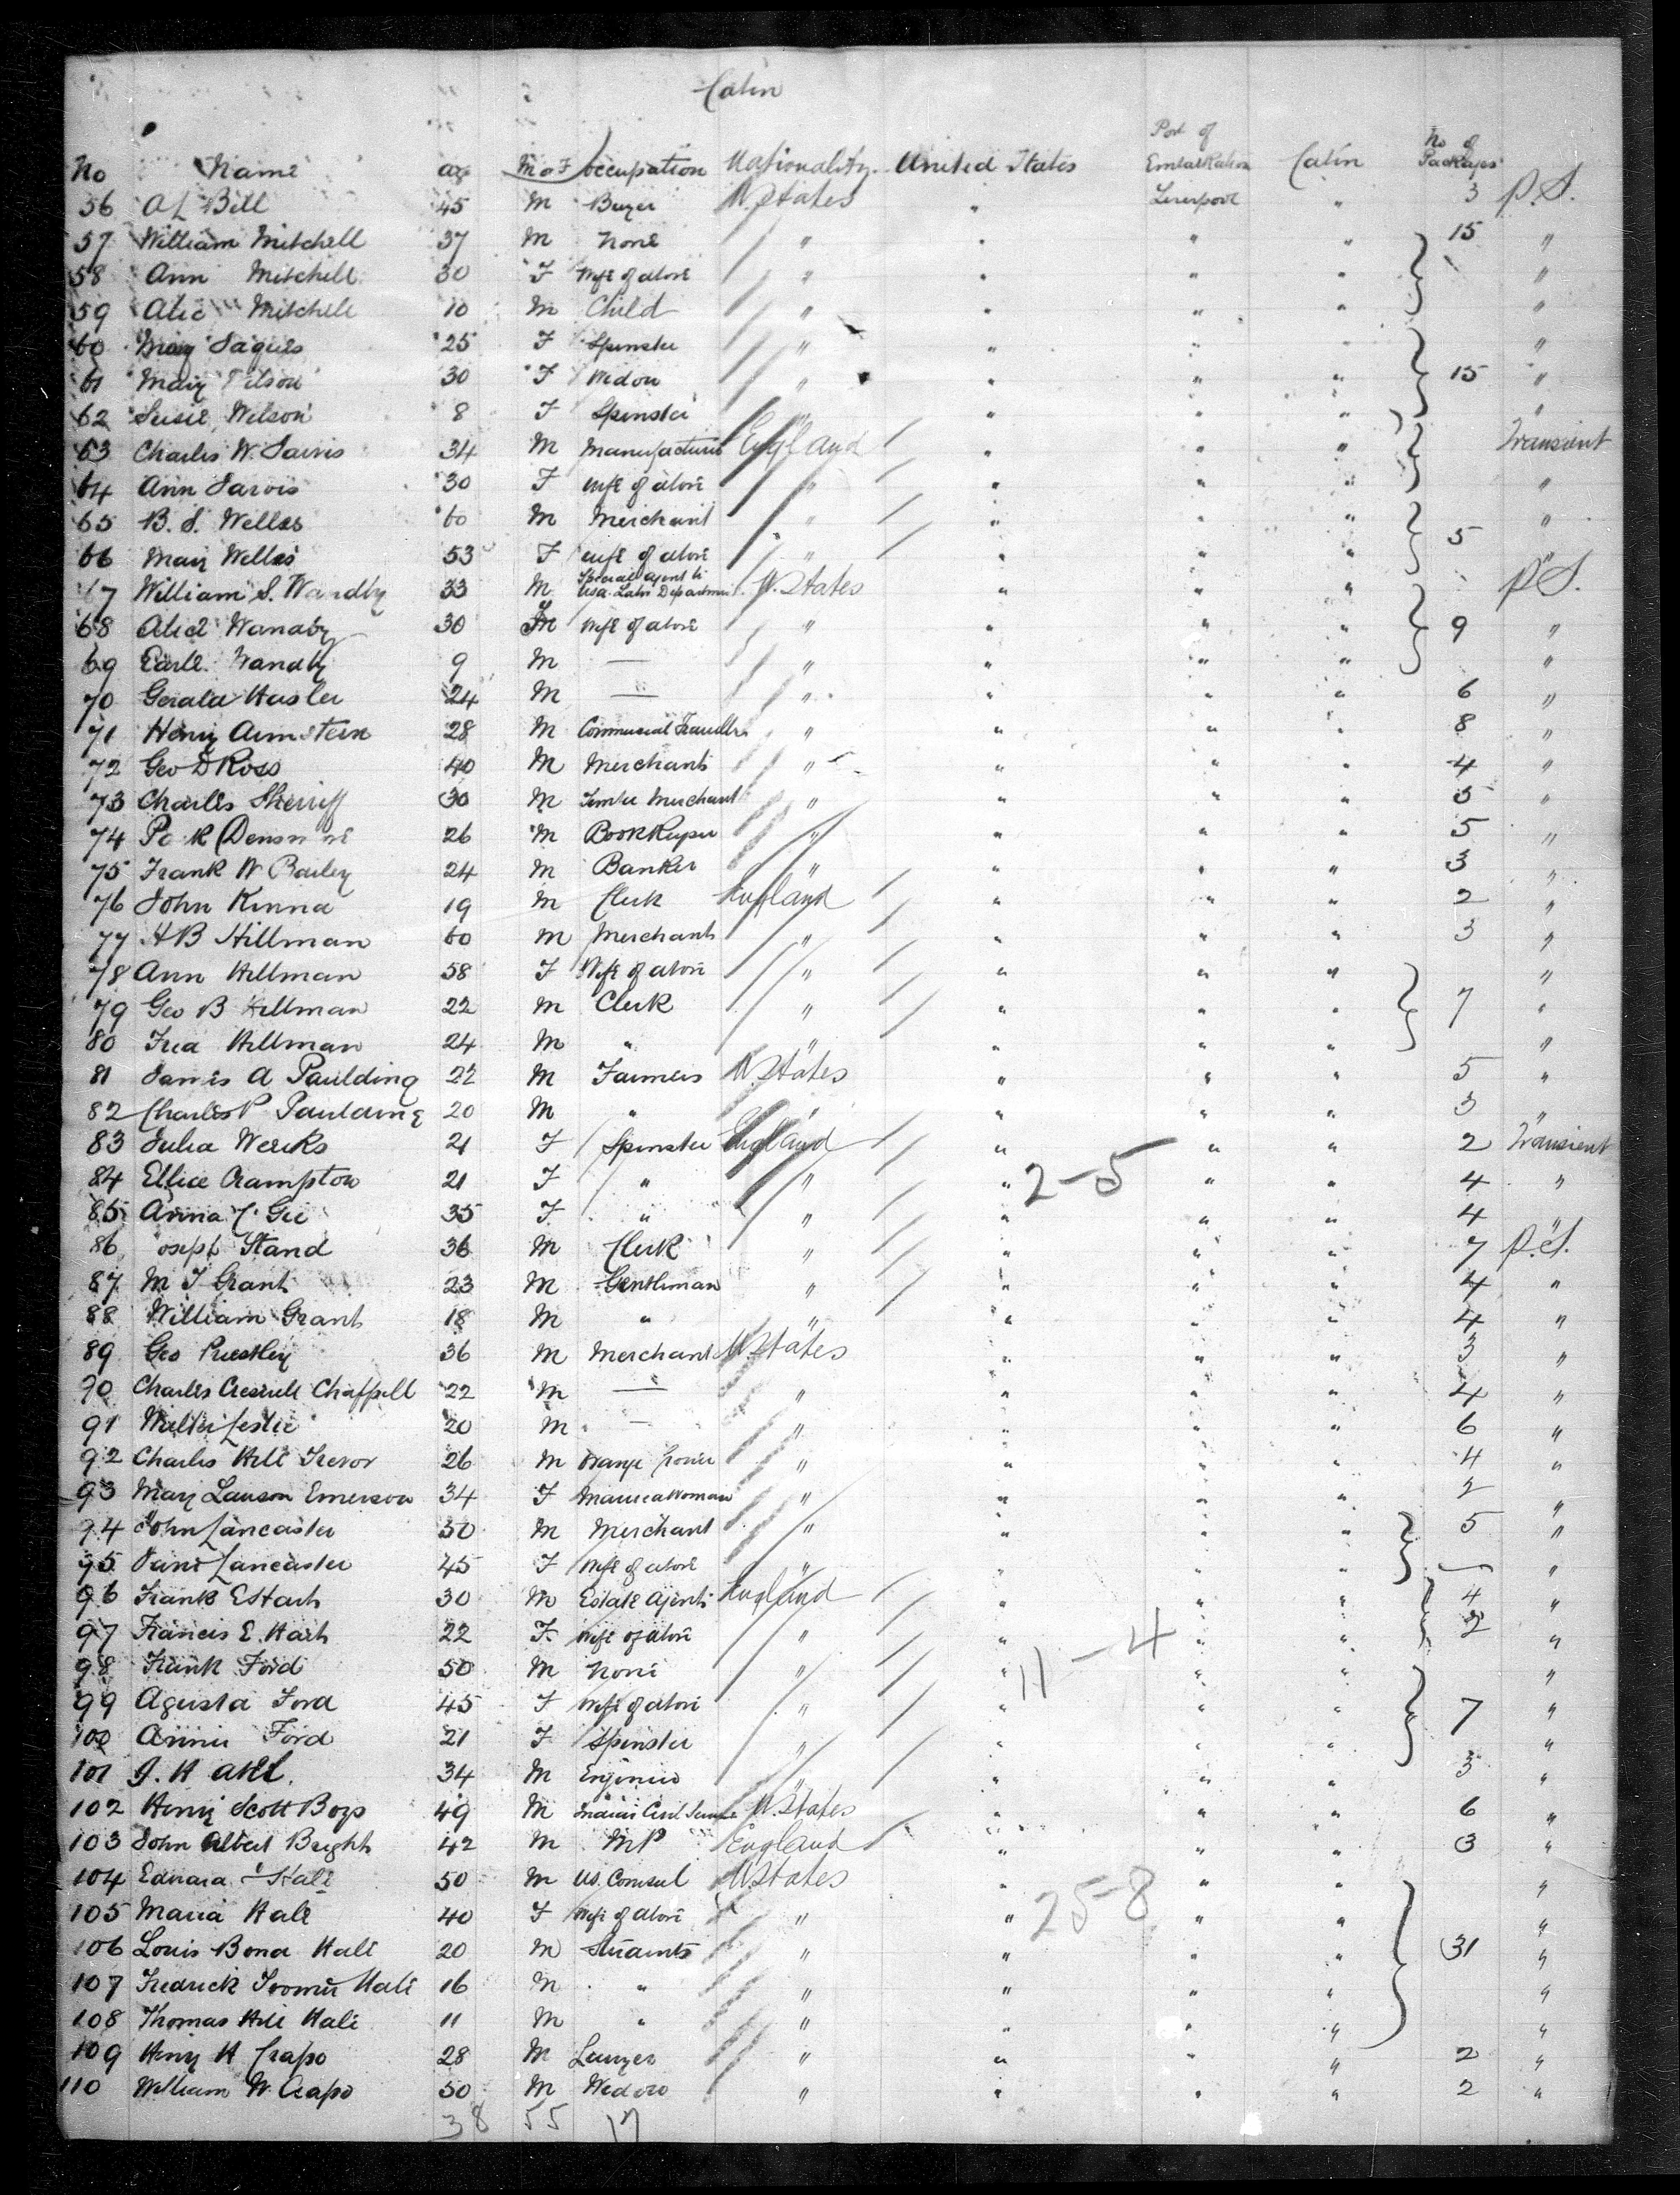 Cabin
No Name age M or F occupation Nationality United States Port of Embarkation Cabin No of Packages
56 A L Bell 45 M Buyer U. States " Liverpool " 3 P.S.
57 William Mitchell 37 M None " " " " 15 "
58 Ann Mitchell 30 F Wife of above " " " " "
59 Alic Mitchell 10 M Child " " " " "
60 Mary Jaques 25 F Spinster " " " " "
61 Mary 30 F Widow " " " " 15 "
62 Susie Wilson 8 F Spinster " " " " "
63 Charles W. Jarvis 34 M Manufacturer England " " " Transient
64 Ann Jarvis 30 F wife of above " " " " "
65 B. S. Welles 60 M Merchant " " " " "
66 Mary Welles 53 F wife of above " " " " 5 "
67 William S. Wandby 33 M Special agent to USA. Labr Department U. States " " " P.S.
68 Alice Wandby 30 F Wife of above " " " " 9 "
69 Earle Wandby 9 M — " " " " "
70 Gerald Hasler 24 M — " " " " 6 "
71 Henry Armstein 28 M Commercial Traveller " " " " 8 "
72 Geo D Ross 40 M Merchant " " " " 4 "
73 Charles Sherriff 30 M Timber Merchant " " " " 3 "
74 26 M Bookkeeper " " " " 5 "
75 Frank W Bailey 24 M Banker " " " " 3 "
76 John Kinna 19 M Clerk England " " " 2 "
77 H B Hillman 60 M Merchant " " " " 3 "
78 Ann Hillman 58 F Wife of above " " " " "
79 Geo B Hillman 22 M Clerk " " " " 7 "
80 Fred Hillman 24 M " " " " " "
81 James A Paulding 22 M Farmers U. States " " " 5 "
82 Charles P Paulding 20 M " " " " " 3 "
83 Julia Weeks 21 F Spinster England " " " 2 Transient
84 Ellice Crampton 21 F " " " 2-5 " " 4 "
85 Anna C. Gee 35 F " " " " " 4 "
86 Joseph Stand 36 M Clerk " " " " 7 P.S.
87 M J Grant 23 M Gentleman " " " " 4 "
88 William Grant 18 M " " " " " 4 "
89 Geo Priestley 36 M Merchant U. States " " " 3 "
90 Charles Creswell Chappell 22 M — " " " " 4 "
91 Walter Leslie 20 M — " " " " 6 "
92 Charles Hill Trevor 26 M Orange Grower " " " " 4 "
93 Mary Lawson Emerson 34 F Married Woman " " " " 2 "
94 John Lancaster 50 M Merchant " " " " 5 "
95 Jane Lancaster 45 F Wife of above " " " " — "
96 Frank E Hart 30 M Estate Agent England " " " 4 "
97 Francis E. Hart 22 F Wife of above " " " " 2 "
98 Frank Ford 50 M None " " 11-4 " " "
99 Agusta Ford 45 F Wife of above " " " " 7 "
100 Annie Ford 21 F Spinster " " " " "
101 J. H 34 M Engineer " " " " 3 "
102 Henry Scott Boys 49 M Indian Civil Service U. States " " " 6 "
103 John Albert Bright 42 M MP England " " " 3 "
104 Edward Hale 50 M US. Consul U. States " " " "
105 Maria Hale 40 F Wife of above " " 25-8 " " "
106 Louis Bond Hale 20 M Students " " " " 31 "
107 Fredrick Hale 16 M " " " " " "
108 Thomas Hill Hale 11 M " " " " " "
109 Henry H Crapo 28 M Lawyer " " " " 2 "
110 William W. Crapo 50 M Widow " " " " 2 "
38 55 17